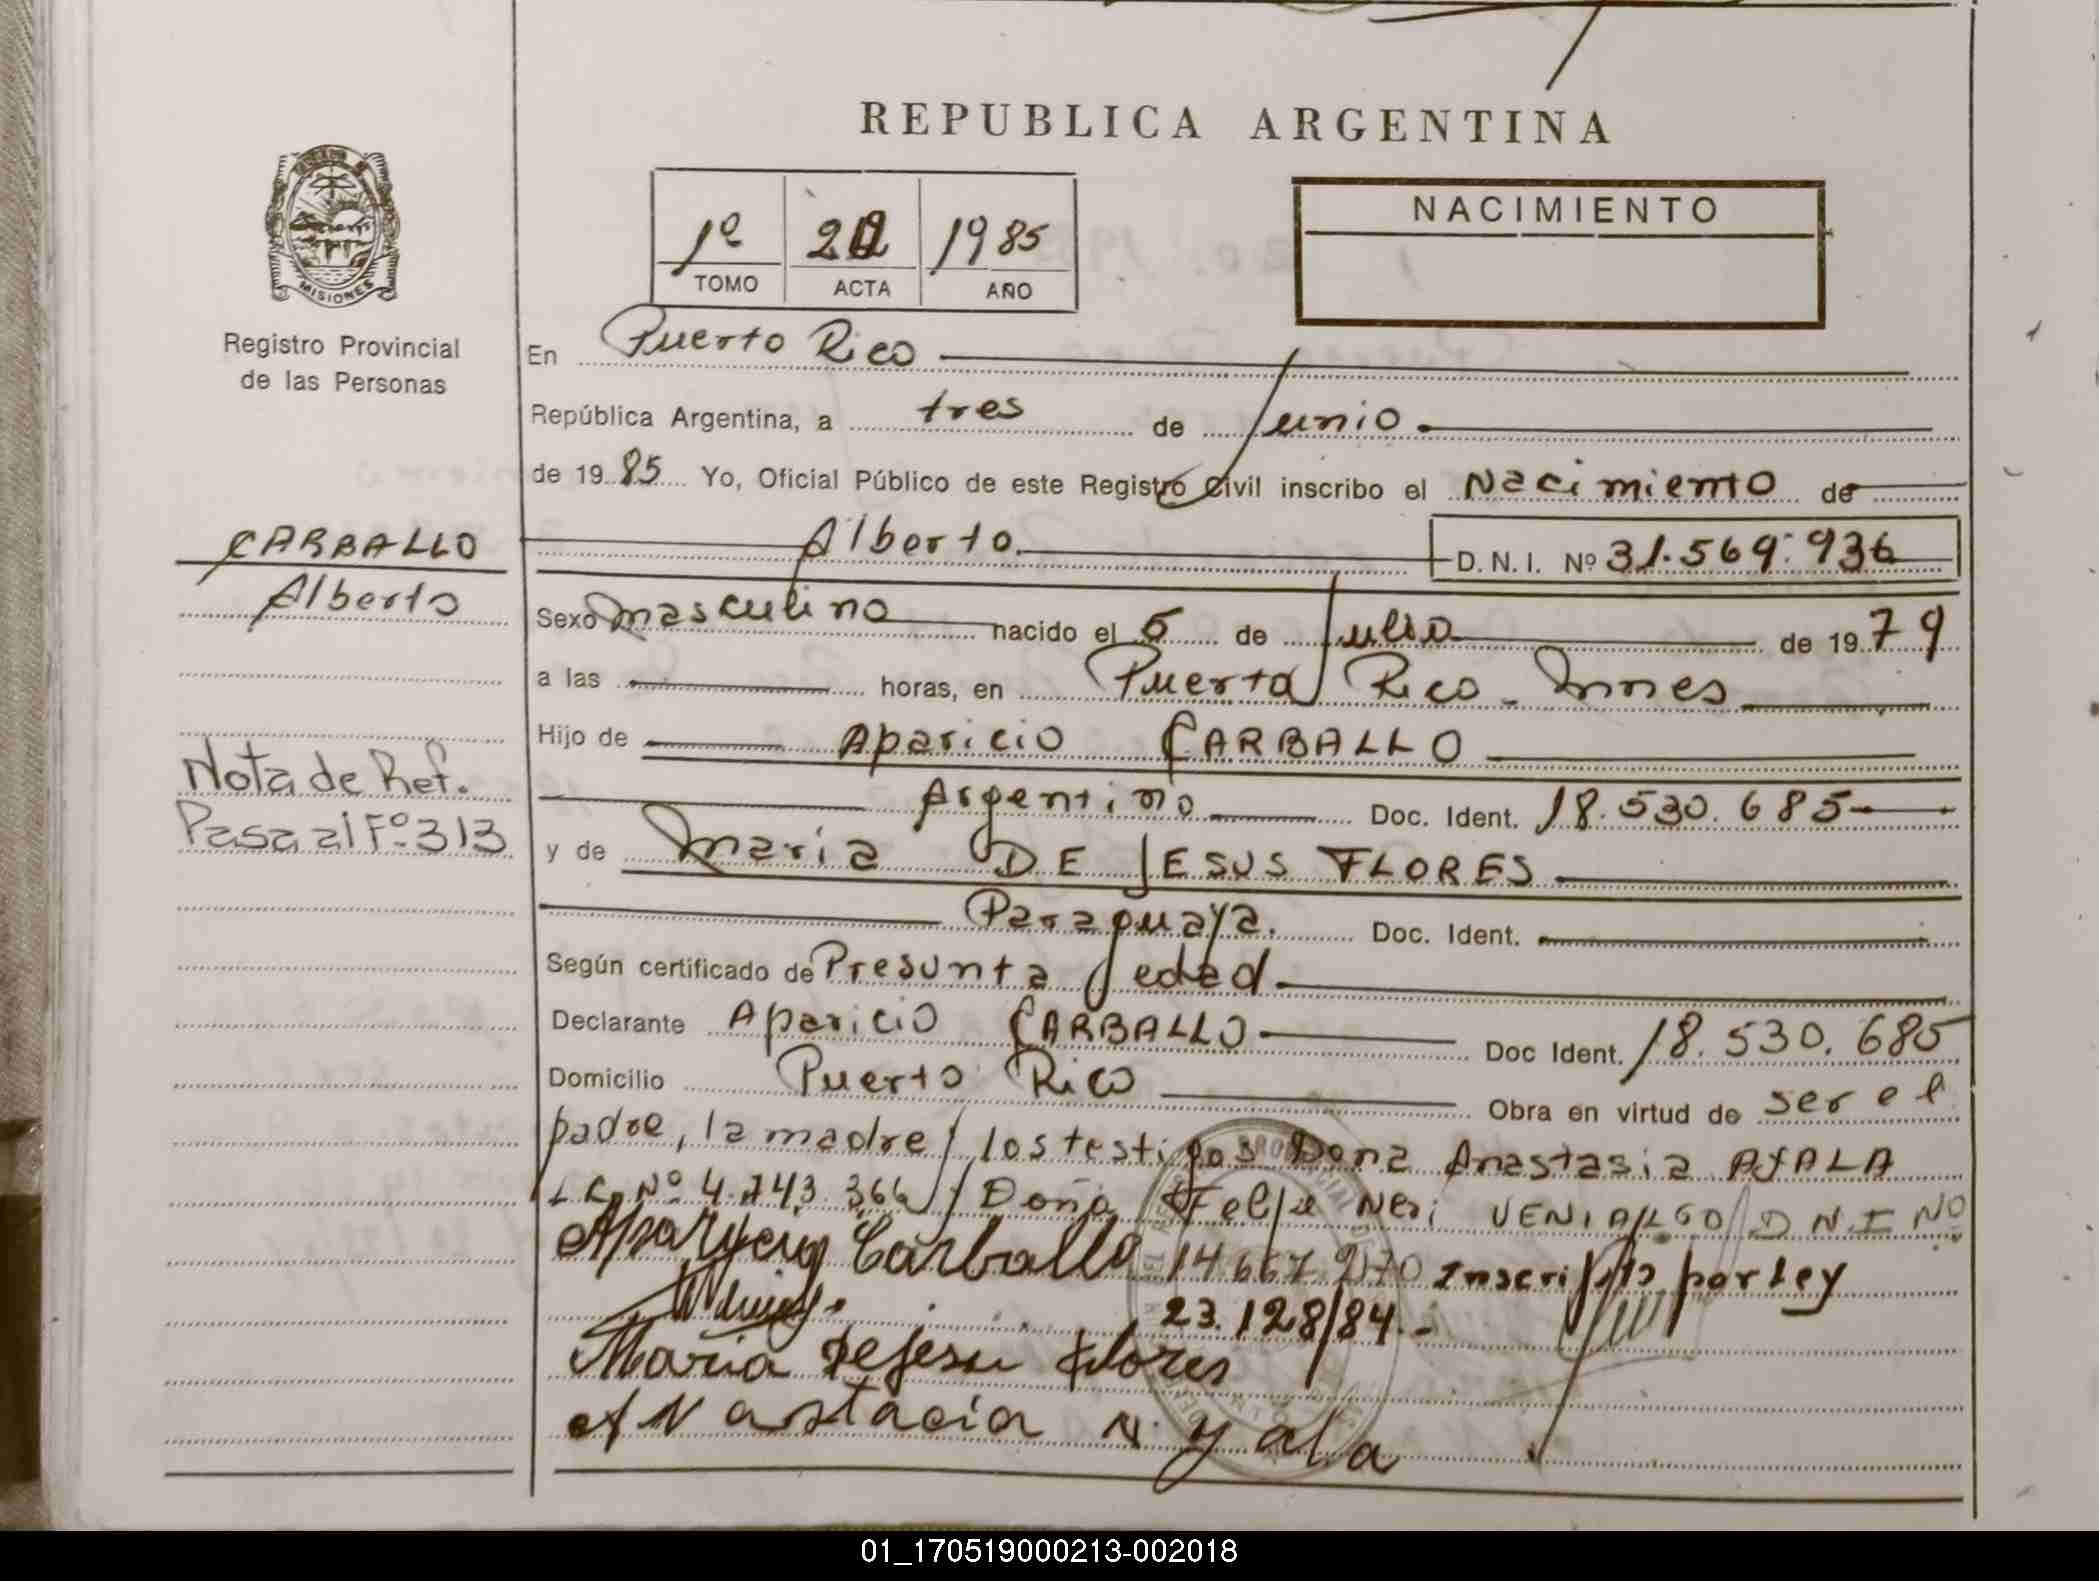 REPUBLICA ARGENTINA
NACIMIENTO
1º 1985
TOMO ACTA AÑO
MISIONES
Registro Provincial
de las Personas
En Puerto Rico
República Argentina, a tres de Junio
de 1985 Yo, Oficial Público de este Registro Civil inscribo el Nacimiento de
CARBALLO
Alberto
Alberto D. N. I. Nº 31.569.936
Sexo masculino nacido el 5 de Julio de 1979
a las horas, en Puerto Rico - Mnes
Hijo de Aparicio CARBALLO
Nota de Ref.
Pasa al Fº 313
Argentino Doc. Ident. 18.530.685
y de Maria DE JESUS FLORES
Paraguaya. Doc. Ident.
Según certificado de Presunta edad.
Declarante Aparicio CARBALLO Doc Ident. 18.530.685
Domicilio Puerto Rico Obra en virtud de ser el
padre, la madre y los testigos Dona Anastasia AYALA
L.C. Nº 4.743.366 y Doña Felipe Neri VENIALGO D N I Nº
Aparycio Carballo 14667970 Inscripto por Ley
23.128/84.-
Maria deJesu flores
ANastacia N. yala
01_170519000213-002018